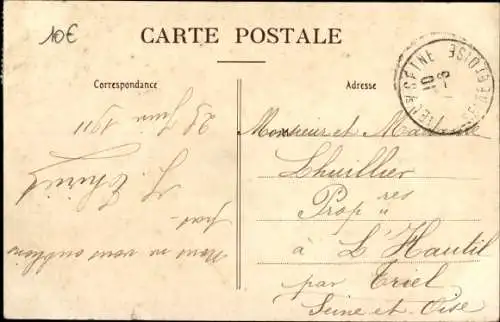 10€
CARTE POSTALE
Correspondance
Adresse
SEINE
Monsieur et Madame
Lhuillier
Prop res
à L'Hautil
par Triel
Seine et Oise
25 Juin 1911
J. Thiriet
pas
Nous ne vous oublions